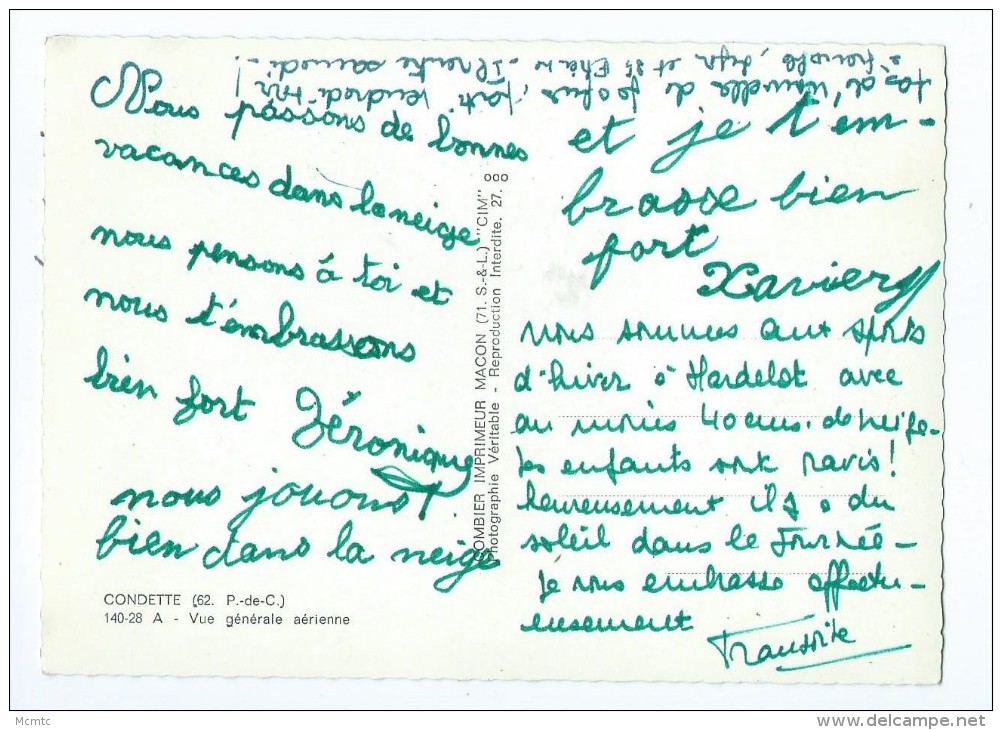 Nous passons de bonnes
vacances dans la neige
nous pensons à toi et
nous t'embrassons
bien fort Véronique
nous jouons
bien dans la neige
et je t'em-
brasse bien
fort
Xavier
nous sommes aux sports
d'hiver à Hardelot avec
au moins 40 cms. de neige-
les enfants sont ravis!
heureusement il y a du
soleil dans la journée-
Je vous embrasse affectu-
eusement
pas de nouvelles de
à Grenoble, et Il rentre samedi-
vendredi soir!
ooo
COMBIER IMPRIMEUR MACON (71. S.-&-L.) "CIM"
Photographie Véritable - Reproduction Interdite. 27.
CONDETTE (62. P.-de-C.)
140-28 A - Vue générale aérienne
Mcmtc
delcampe.net